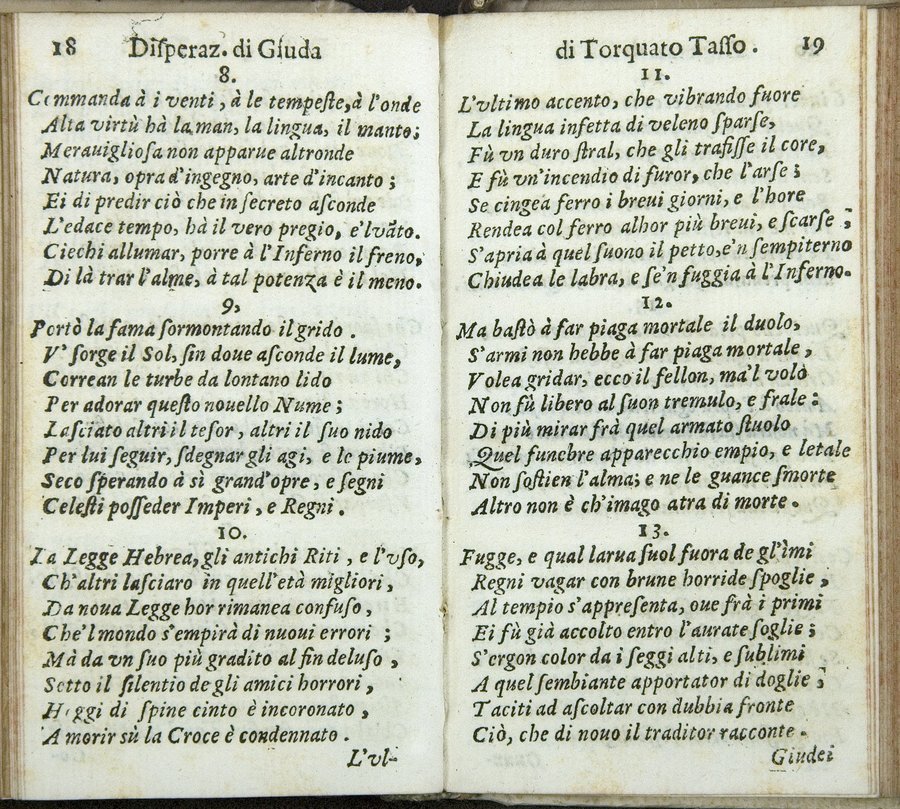 18 Diſperaz. di Giuda
8.
Commanda à i venti, à le tempeſte, à l'onde
Alta virtù hà la man, la lingua, il manto;
Merauiglioſa non apparue altronde
Natura, opra d'ingegno, arte d'incanto;
Ei di predir ciò che in ſecreto aſconde
L'edace tempo, hà il vero pregio, e'l vāto.
Ciechi allumar, porre à l'Inferno il freno,
Di là trar l'alme, à tal potenza è il meno.
9,
Portò la fama ſormontando il grido
V' ſorge il Sol, ſin doue aſconde il lume,
Correan le turbe da lontano lido
Per adorar queſto nouello Nume;
Laſciato altri il teſor, altri il ſuo nido
Per lui ſeguir, ſdegnar gli agi, e le piume,
Seco ſperando à sì grand'opre, e ſegni
Celeſti poſſeder Imperi, e Regni.
10.
La Legge Hebrea, gli antichi Riti, e l'vſo,
Ch'altri laſciaro in quell'età migliori,
Da noua Legge hor rimanea confuſo,
Che'l mondo s'empirà di nuoui errori;
Mà da vn ſuo più gradito al fin deluſo,
Sotto il ſilentio de gli amici horrori,
Hoggi di ſpine cinto è incoronato,
A morir sù la Croce è condennato.
L'vl-
di Torquato Taſſo. 19
11.
L'vltimo accento, che vibrando fuore
La lingua infetta di veleno ſparſe,
Fù vn duro ſtral, che gli trafiſſe il core,
E fù vn'incendio di furor, che l'arſe;
Se cingea ferro i breui giorni, e l'hore
Rendea col ferro alhor più breui, e ſcarſe;
S'apria à quel ſuono il petto, e'n ſempiterno
Chiudea le labra, e ſe'n fuggia à l'Inferno.
12.
Ma baſtò à far piaga mortale il duolo,
S'armi non hebbe à far piaga mortale,
Volea gridar, ecco il fellon, ma'l volò
Non fù libero al ſuon tremulo, e frale:
Di più mirar frà quel armato ſtuolo
Quel funebre apparecchio empio, e letale
Non ſoſtien l'alma; e ne le guance ſmorte
Altro non è ch'imago atra di morte.
13.
Fugge, e qual larua ſuol fuora de gl'imi
Regni vagar con brune horride ſpoglie,
Al tempio s'appreſenta, oue frà i primi
Ei fù già accolto entro l'aurate ſoglie;
S'ergon color da i ſeggi alti, e ſublimi
A quel ſembiante apportator di doglie;
Taciti ad aſcoltar con dubbia fronte
Ciò, che di nouo il traditor racconte.
Giudei